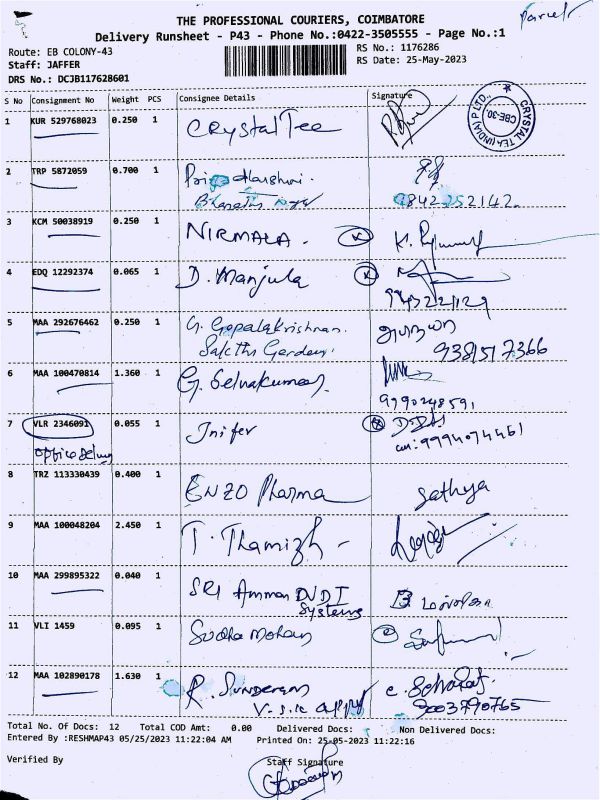 Parcel
THE PROFESSIONAL COURIERS, COIMBATORE
Delivery Runsheet - P43 - Phone No.:0422-3505555 - Page No.:1
Route: EB COLONY-43 RS No.: 1176286
Staff: JAFFER RS Date: 25-May-2023
DRS No.: DCJB117628601
S No Consignment No Weight PCS Consignee Details Signature
1 KUR 529768023 0.250 1 Crystal Tee
CRYSTAL TEA (INDIA) P LTD. CBE-30.
2 TRP 5872059 0.700 1 Priya
9842252142.
3 KCM 50038919 0.250 1 NIRMALA.
4 EDQ 12292374 0.065 1 D. Manjula
5 MAA 292676462 0.250 1 G. Gopalakrishnan.
Sakthi Garden
9381517366
6 MAA 100470814 1.360 1 G. Selvakumar
9790248591
7 VLR 2346091 0.055 1 Jnifer
office 9994074461
8 TRZ 113330439 0.400 1 ENZO Pharma Sathya
9 MAA 100048204 2.450 1 T. Thamizh
10 MAA 299895322 0.040 1 SRI Amman
Systems
11 VLI 1459 0.095 1 Sudha Mohan
12 MAA 102890178 1.630 1 R. Sunderam
9003790765
Total No. Of Docs: 12 Total COD Amt: 0.00 Delivered Docs: Non Delivered Docs:
Entered By :RESHMAP43 05/25/2023 11:22:04 AM Printed On: 25-05-2023 11:22:16
Verified By Staff Signature